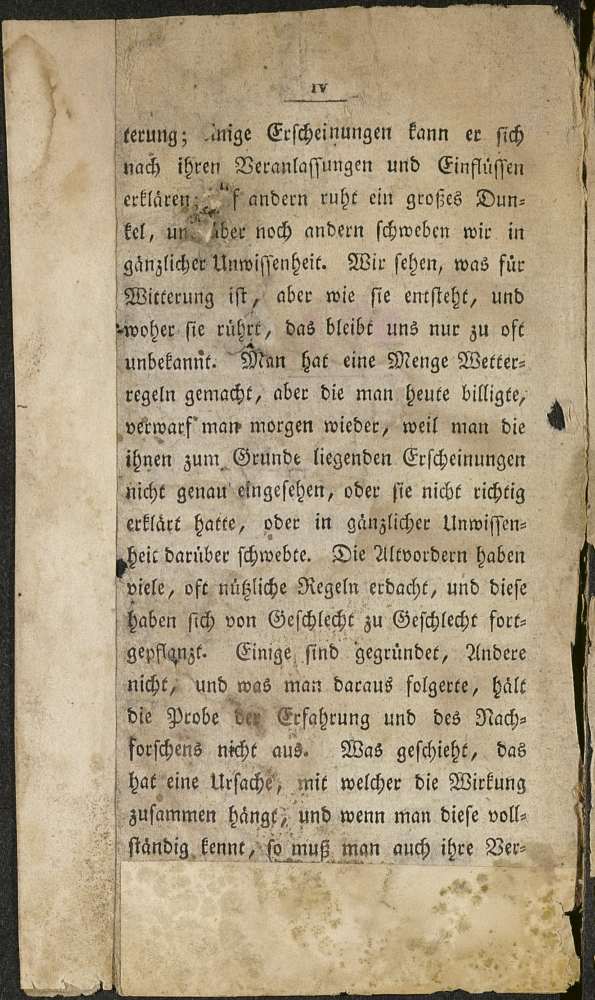 IV
terung; einige Erscheinungen kann er sich
nach ihren Veranlassungen und Einflüssen
erklären; auf andern ruht ein großes Dun-
kel, und über noch andern schweben wir in
gänzlicher Unwissenheit. Wir sehen, was für
Witterung ist, aber wie sie entsteht, und
woher sie rührt, das bleibt uns nur zu oft
unbekannt. Man hat eine Menge Wetter-
regeln gemacht, aber die man heute billigte,
verwarf man morgen wieder, weil man die
ihnen zum Grunde liegenden Erscheinungen
nicht genau eingesehen, oder sie nicht richtig
erklärt hatte, oder in gänzlicher Unwissen-
heit darüber schwebte. Die Altvordern haben
viele, oft nützliche Regeln erdacht, und diese
haben sich von Geschlecht zu Geschlecht fort-
gepflanzt. Einige sind gegründet, Andere
nicht, und was man daraus folgerte, hält
die Probe der Erfahrung und des Nach-
forschens nicht aus. Was geschieht, das
hat eine Ursache, mit welcher die Wirkung
zusammen hängt, und wenn man diese voll-
ständig kennt, so muß man auch ihre Ver-